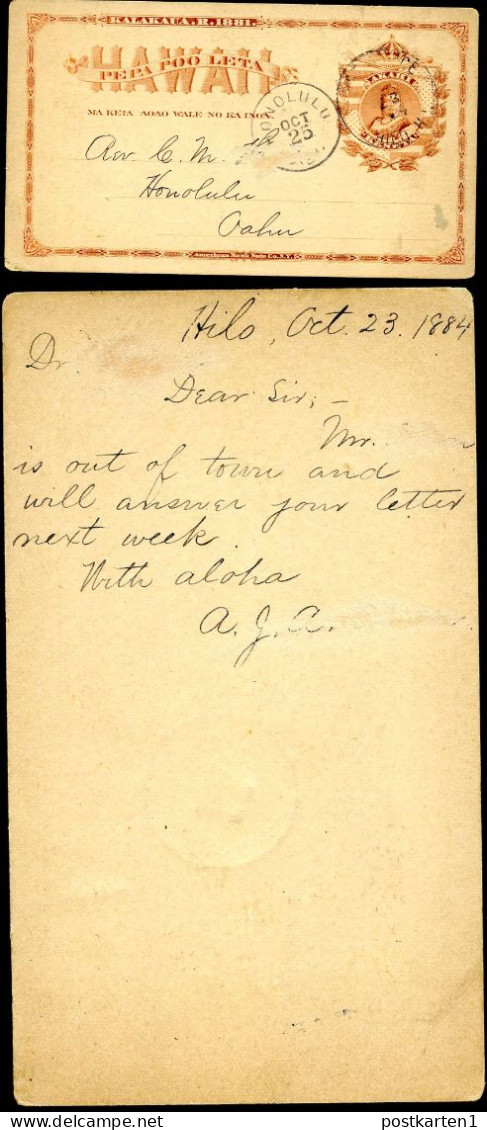 KALAKAUA. R. 1881.
HAWAII
PEPA POO LETA
MA KEIA AOAO WALE NO KA INOA.
HONOLULU
OCT
25
AKAHI
Rev C. M.
Honolulu
Oahu
American Bank Note Co. N.Y.
Hilo, Oct. 23. 1884
Dr
Dear Sir, -
Mr.
is out of town and
will answer your letter
next week.
With aloha
A. J. A.
postkarten1